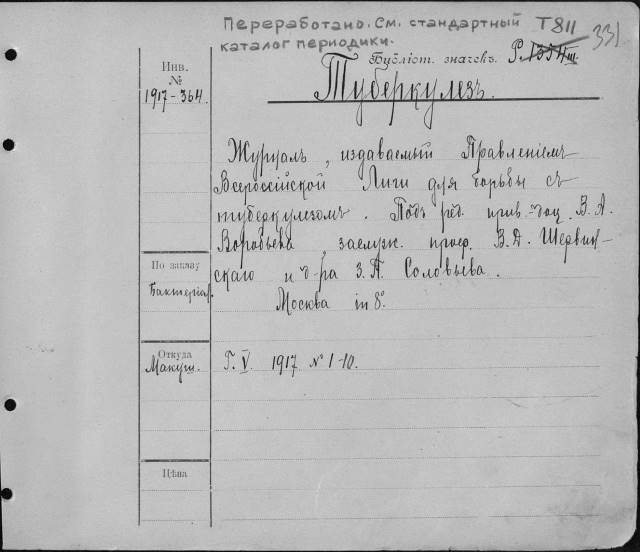 Переработано. См. стандартный Т811
каталог периодики. 331
Библіот. значекъ. Р.1354III.
Инв.
№
1917-364.
Туберкулезъ.
Журналъ, издаваемый Правленіемъ
Всероссійской Лиги для борьбы съ
туберкулезомъ. Подъ ред. прив.-доц. В. А.
Воробьева, заслуж. проф. В. Д. Шервин-
скаго и д-ра З. П. Соловьева.
Москва in 8°.
По заказу
Бактеріол.
Откуда
Макуш.
Г. V. 1917 № 1-10.
Цѣна